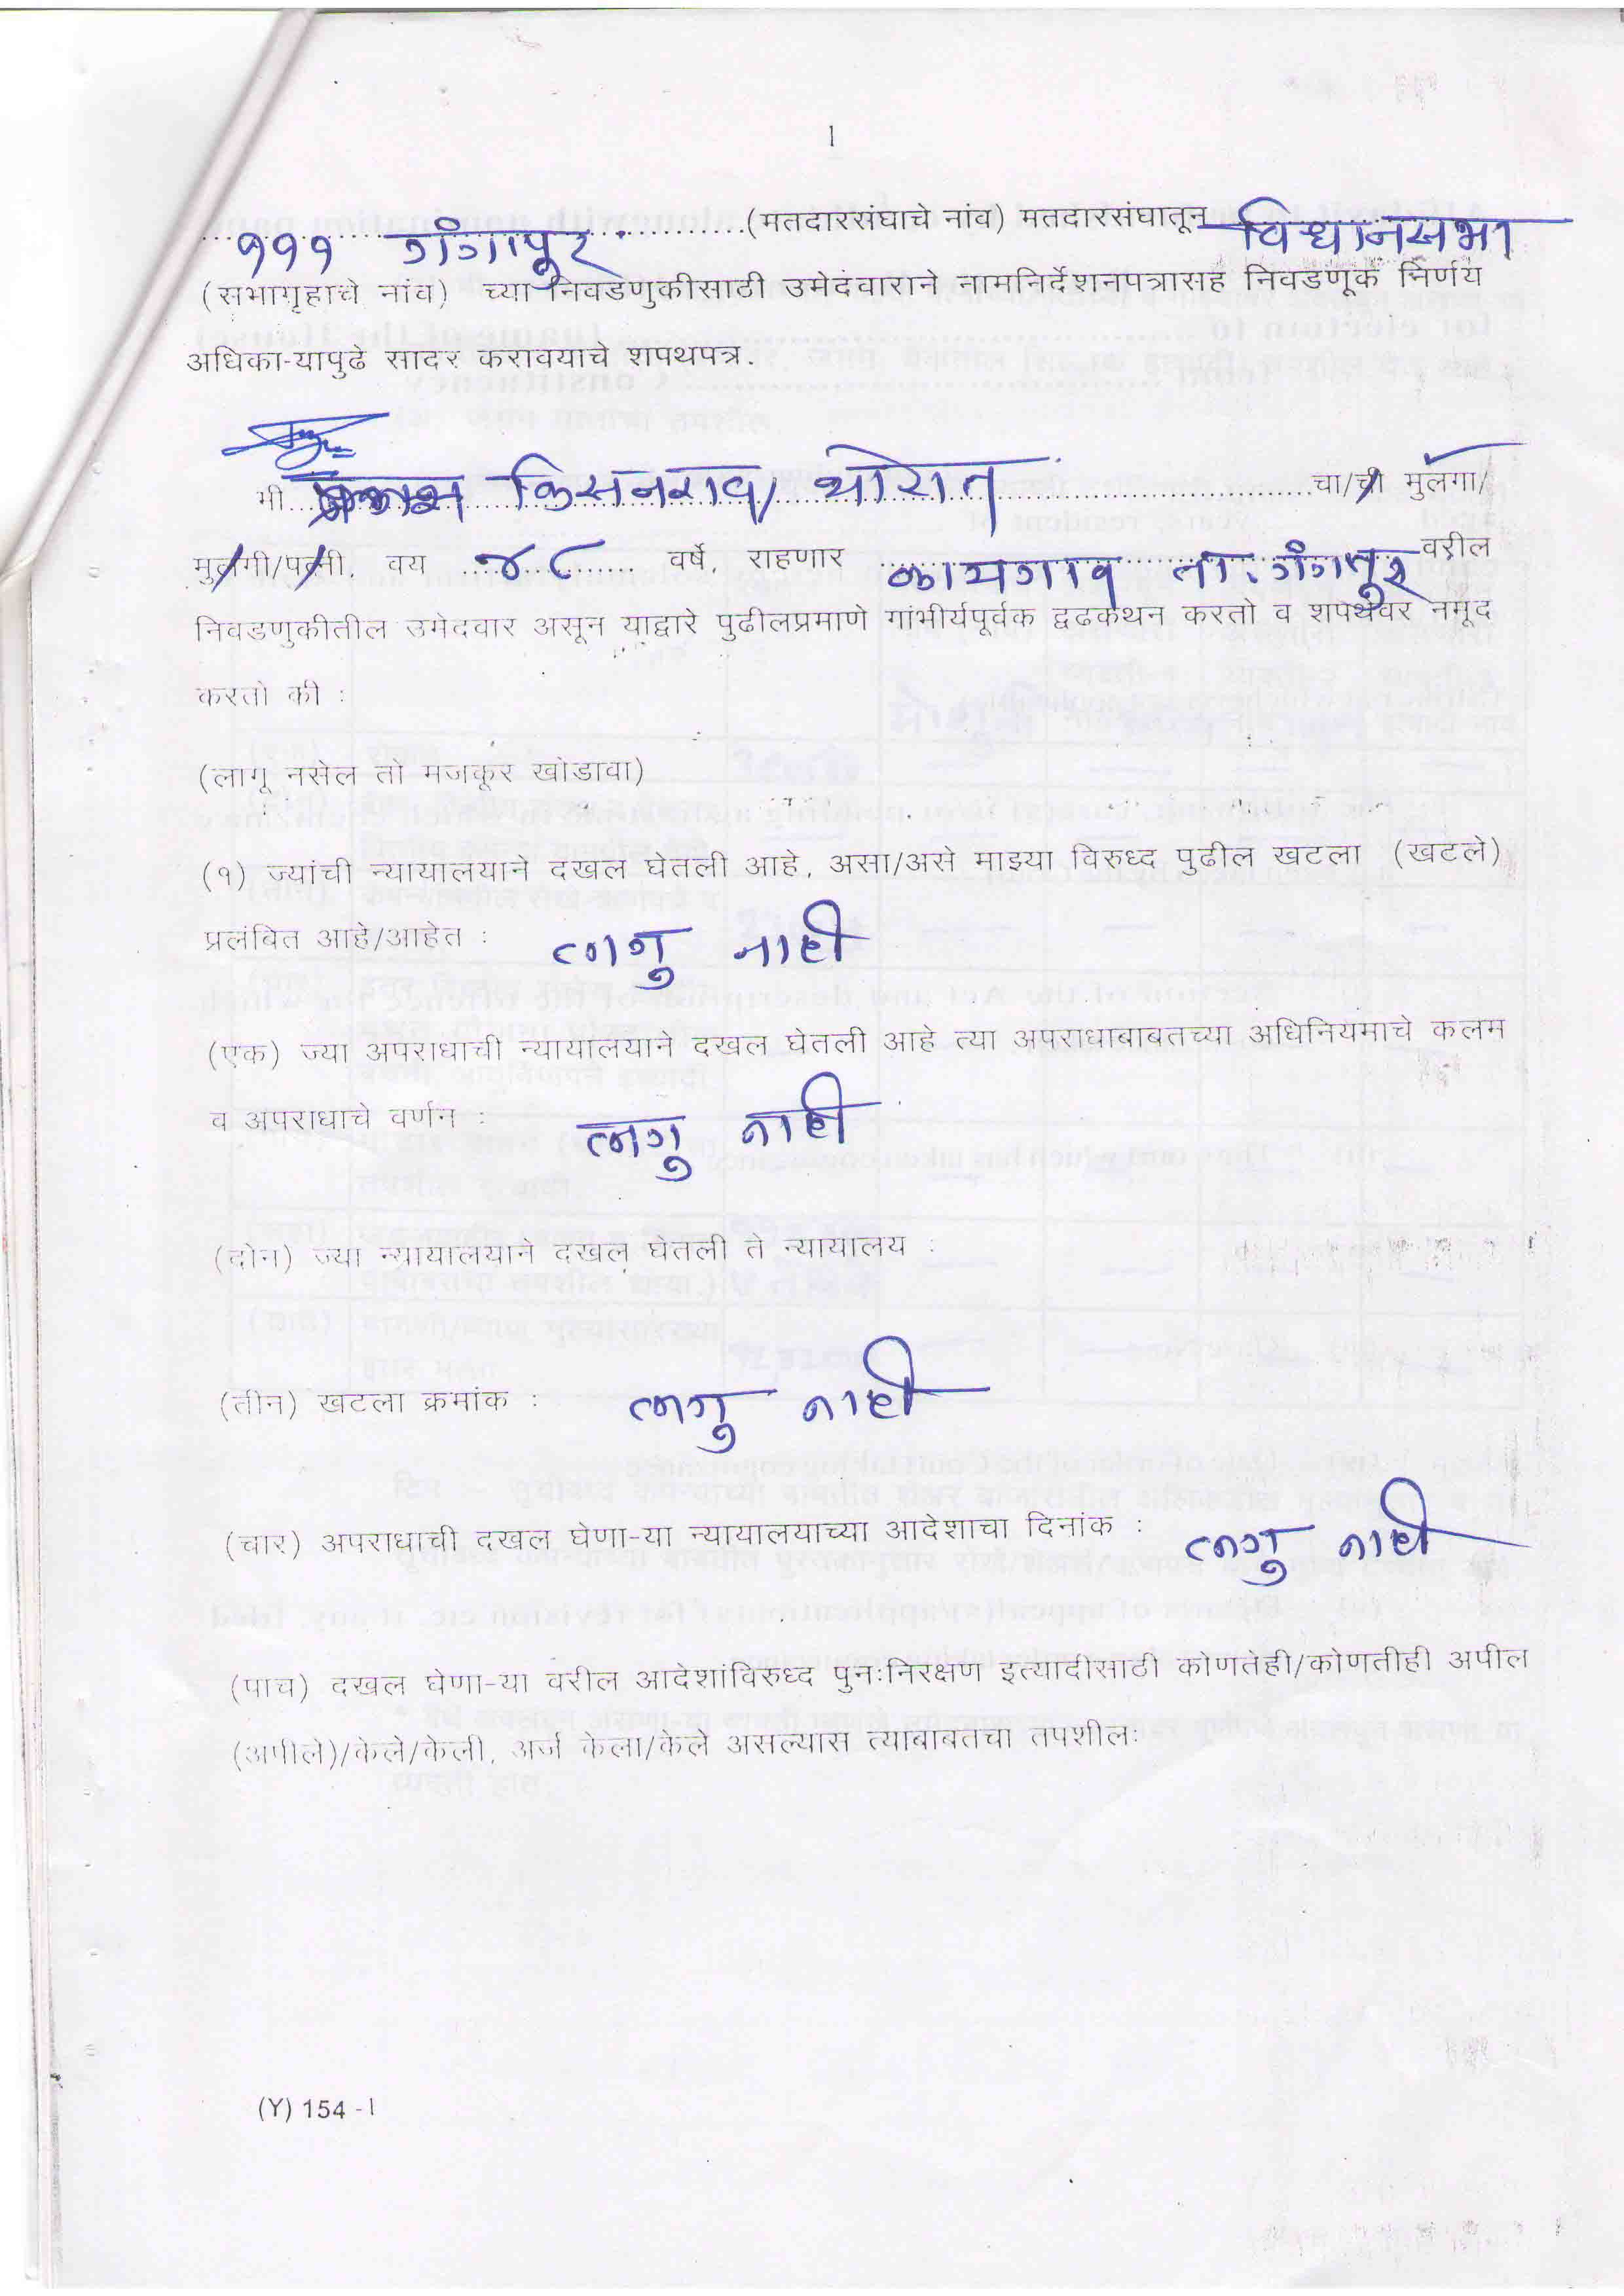 1
१११ गंगापूर (मतदारसंघाचे नांव) मतदारसंघातून विधानसभा
(सभागृहाचे नांव) च्या निवडणुकीसाठी उमेदवाराने नामनिर्देशनपत्रासह निवडणूक निर्णय
अधिका-यापुढे सादर करावयाचे शपथपत्र.
मी किसनराव थोरात चा/ची मुलगा/
मुलगी/पत्नी, वय ४८ वर्षे, राहणार कायगाव ता. गंगापूर वरील
निवडणुकीतील उमेदवार असून याद्वारे पुढीलप्रमाणे गांभीर्यपूर्वक द्वढकथन करतो व शपथेवर नमूद
करतो की :
(लागू नसेल तो मजकूर खोडावा)
(१) ज्यांची न्यायालयाने दखल घेतली आहे, असा/असे माझ्या विरुध्द पुढील खटला (खटले)
प्रलंबित आहे/आहेत : लागु नाही
(एक) ज्या अपराधाची न्यायालयाने दखल घेतली आहे त्या अपराधाबाबतच्या अधिनियमाचे कलम
व अपराधाचे वर्णन : लागु नाही
(दोन) ज्या न्यायालयाने दखल घेतली ते न्यायालय :
(तीन) खटला क्रमांक : लागु नाही
(चार) अपराधाची दखल घेणा-या न्यायालयाच्या आदेशाचा दिनांक : लागु नाही
(पाच) दखल घेणा-या वरील आदेशांविरुध्द पुनःनिरक्षण इत्यादीसाठी कोणतेही/कोणतीही अपील
(अपीले)/केले/केली, अर्ज केला/केले असल्यास त्याबाबतचा तपशीलः
(Y) 154 -1